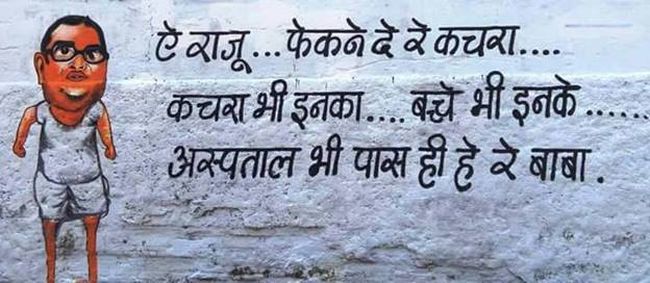 ऐ राजू...फेकने दे रे कचरा....
कचरा भी इनका.... बच्चे भी इनके......
अस्पताल भी पास ही हे रे बाबा.